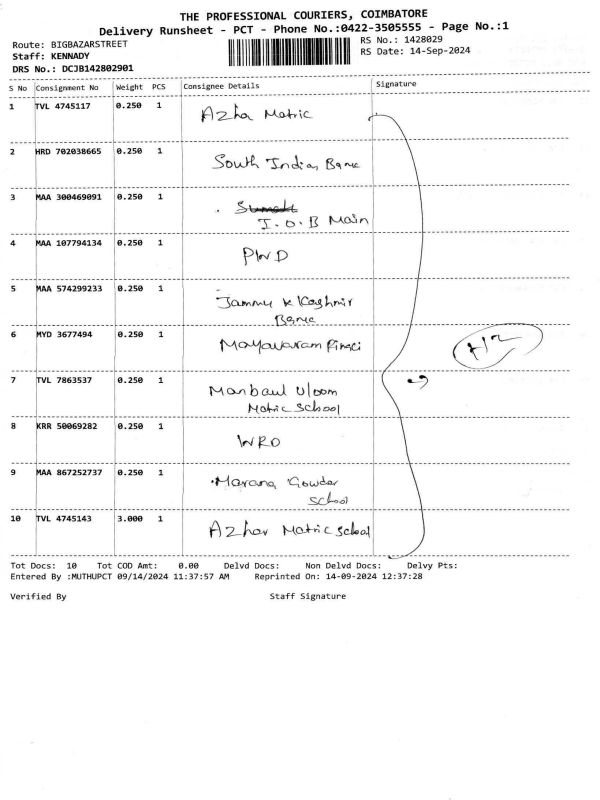 THE PROFESSIONAL COURIERS, COIMBATORE
Delivery Runsheet - PCT - Phone No.:0422-3505555 - Page No.:1
Route: BIGBAZARSTREET
RS No.: 1428029
Staff: KENNADY
RS Date: 14-Sep-2024
DRS No.: DCJB142802901
S No Consignment No Weight PCS Consignee Details Signature
1 TVL 4745117 0.250 1 Azha Matric
2 HRD 702038665 0.250 1 South Indian Bank
3 MAA 300469091 0.250 1
I.O.B Main
4 MAA 107794134 0.250 1 PWD
5 MAA 574299233 0.250 1 Jammu & Kashmir
Bank
6 MYD 3677494 0.250 1 Mayavaram
7 TVL 7863537 0.250 1 Manbaul Uloom
Matric School
8 KRR 50069282 0.250 1 WRD
9 MAA 867252737 0.250 1 Marana Gowder
School
10 TVL 4745143 3.000 1 Azhar Matric School
Tot Docs: 10 Tot COD Amt: 0.00 Delvd Docs: Non Delvd Docs: Delvy Pts:
Entered By :MUTHUPCT 09/14/2024 11:37:57 AM Reprinted On: 14-09-2024 12:37:28
Verified By Staff Signature